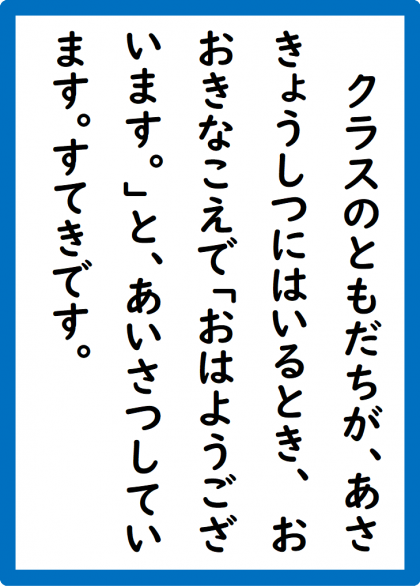 クラスのともだちが、あさ
きょうしつにはいるとき、お
おきなこえで「おはようござ
います。」と、あいさつしてい
ます。すてきです。